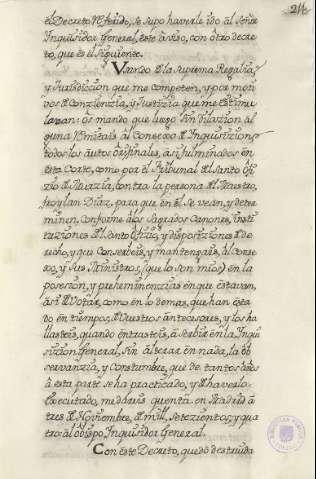 211
el Decreto referido, se supo haverle ido al Señor
Inquisidor General, este aviso, con otro decre-
to, que es el siguiente.
Usando de la suprema Regalia,
y Jurisdiccion que me competen, y por moti-
vos de Conzienzia, y Justizia que me estimu-
laran: os mando que luego sin dilazion al
guna remitais al Consejo de Inquisizion
todos los autos originales, asi fulminados en
esta Corte, como por el Tribunal del Santo Ofi-
zio de Murzia, contra la persona del Maestro,
froylan Diaz, para que en el se vean, y deter-
minen, conforme a los sagrados Canones, insti-
tuziones del Santo Ofizio, y disposiziones de de-
recho, y que conserveis, y mantengais, al Conse-
jo, y sus Ministros, (que lo son mios) en la
posesion, y preheminenzias en que estavan,
asi de Votar, como en lo demas, que han esta-
do en tiempos de Vuestros antecesores, y los ha-
llasteis, quando entrasteis, a servir en la Inqui
sizion General, sin alterar en nada, la ob
servanzia, y Costumbre, que de tantos años
a esta parte se ha practicado, y de haverlo
executado, me dareis quenta en Madrid a
tres de Noviembre, de mil, setezientos, y qua
tro: al obispo Inquisidor General.
Con este Decreto, quedó destruida